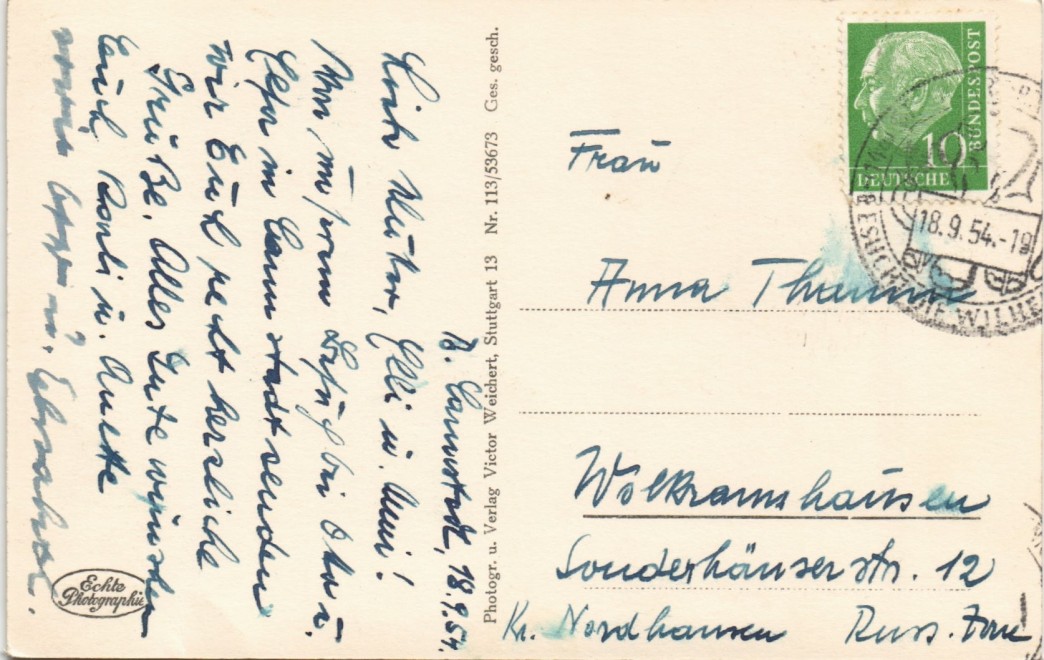 B. Cannstadt, 18.9.54.
Liebe Mutter, Elli u. Uwi!
Von unserem Besuch bei Otto u.
in Cannstadt senden
wir Euch recht herzliche
Grüße. Alles Gute wünschen
Euch u. Anette
Photogr. u. Verlag Victor Weichert, Stuttgart 13 Nr. 113/53673 Ges. gesch.
Echte
Photographie
BUNDESPOST
10
DEUTSCHE
18.9.54.-19
Frau
Anna Thumm
Wolkramshausen
Sonderhäuserstr. 12
Kr. Nordhausen Russ. Zone